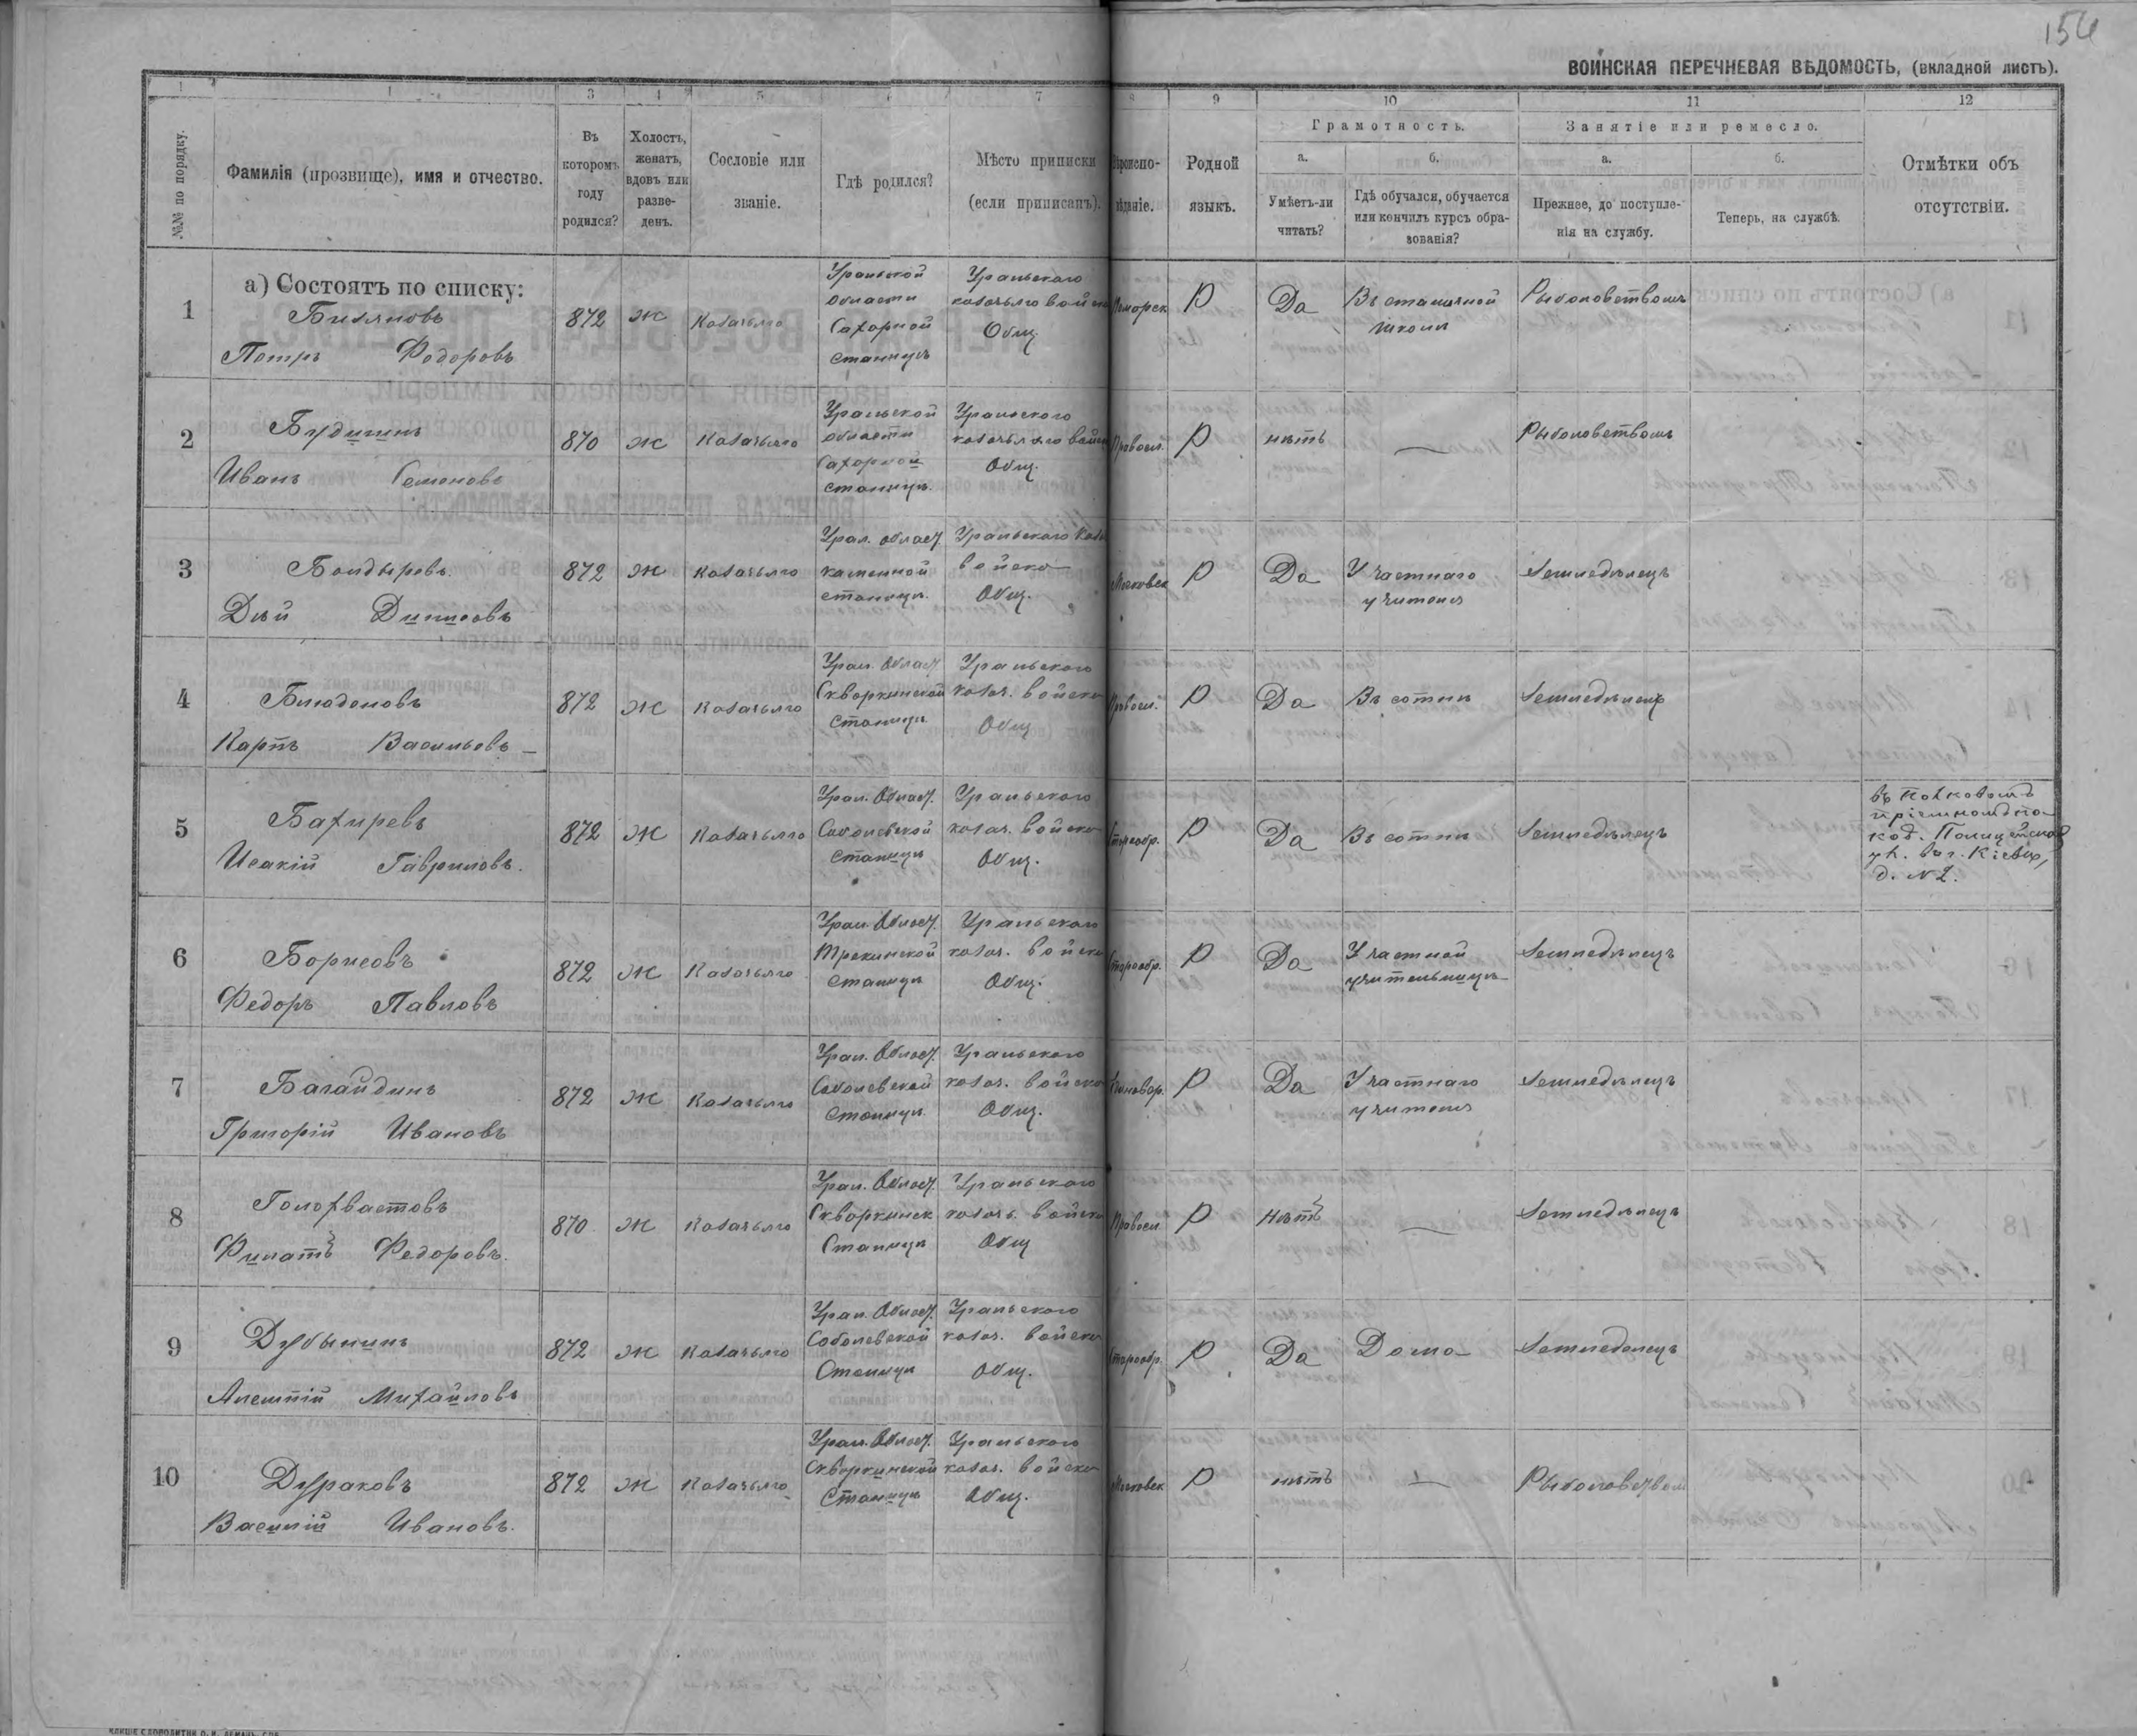 154
ВОИНСКАЯ ПЕРЕЧНЕВАЯ ВѢДОМОСТЬ, (вкладной листъ).
1 3 4 5 7 9 10 11 12
№№ по порядку.
Фамилія (прозвище), имя и отчество.
Въ которомъ году родился?
Холостъ, женатъ, вдовъ или разведенъ.
Сословіе или званіе.
Гдѣ родился?
Мѣсто приписки (если приписанъ).
Вѣроиспо-вѣданіе.
Родной языкъ.
Грамотность.
а. Умѣетъ-ли читать?
б. Гдѣ обучался, обучается или кончилъ курсъ образованія?
Занятіе или ремесло.
а. Прежнее, до поступленія на службу.
б. Теперь, на службѣ.
Отмѣтки объ отсутствіи.
а) Состоятъ по списку:
1 Биляновъ Петръ Федоровъ 872 Ж Казачьяго Уральской области Сахорной станицѣ Уральскаго казачьяго войска Общ. Поморск Р Да Въ станичной школѣ Рыболовствомъ
2 Будишнъ Иванъ Семеновъ 870 Ж Казачьяго Уральской области Сахорной станицѣ Уральскаго казачьяго войска Общ. Правосл. Р нѣтъ — Рыболовствомъ
3 Болдыревъ Дій Денисовъ 872 Ж Казачьяго Урал. област. каменной станицѣ Уральскаго Казач войска Общ. Московск Р Да У частнаго учителя Земледѣлецъ
4 Блюденовъ Карпъ Васильевъ 872 Ж Казачьяго Урал. Област. Скворкинской станицѣ Уральскаго казач. войска Общ Правосл. Р Да Въ сотнѣ Земледѣлецъ
5 Бахиревъ Исакій Гавриловъ. 872 Ж Казачьяго Урал. Област. Соболевской станицѣ Уральскаго казач. войска Общ. Старообр. Р Да Въ сотнѣ Земледѣлецъ въ Полковомъ пріемномъ по- Полицейской ул. въ г. Кіевѣ, д. № 2.
6 Борисовъ Федоръ Павловъ 872 Ж Казачьяго Урал. Област. Трекинской станицѣ Уральскаго казач. войска Общ. Старообр. Р Да У частной учительницѣ Земледѣлецъ
7 Багайдинъ Григорій Ивановъ 872 Ж Казачьяго Урал. Област. Соболевской станицѣ Уральскаго казач. войска Общ. Единовѣр. Р Да У частнаго учителя Земледѣлецъ
8 Голохвастовъ Филатъ Федоровъ. 870 Ж Казачьяго Урал. Област. Скворкинск Станицѣ Уральскаго казачь. войска Общ Правосл Р Нѣтъ — Земледѣлецъ
9 Дубынинъ Алемпій Михайловъ 872 Ж Казачьяго Урал. Област. Соболевской Станицѣ Уральскаго казач. войска Общ. Старообр. Р Да Дома Земледелецъ
10 Дураковъ Василій Ивановъ. 872 Ж Казачьяго Урал. Област. Скворкинской Станицѣ Уральскаго казач. войска Общ. Московск Р нѣтъ — Рыболовством